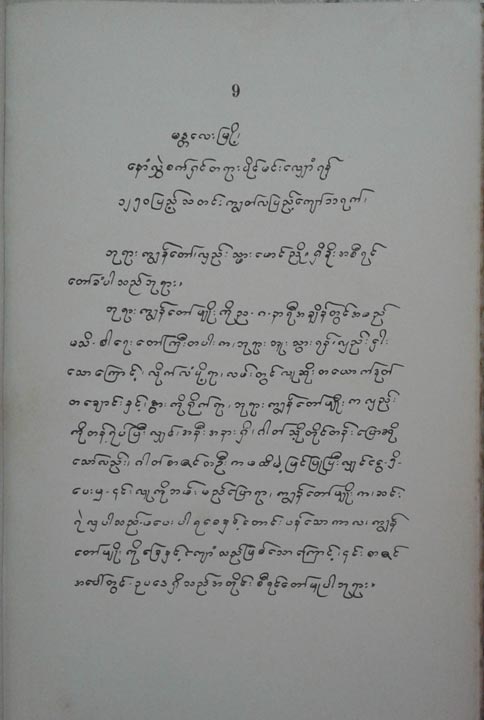 9
မန္တလေးမြို့၊
နော်လွှဲစက်ရှင်တရားပိုင်မင်းလျှောံရန်
၁၂၅၀ပြည့် သတင်းကျွတ်လပြည့်ကျော်၁၁ရက်၊
ဘုရားကျွန်တော်လှည်းသွားမောင်ညို၊ ရှိခိုးအစီရင်
တော်ခံပါသည်ဘုရား။
ဘုရားကျွန်တော်မျိုးကိုည-ဂ-နာရီအချိန်တွင်အမည်
မသိ-စါရေးတော်ကြီးတပါးက၊ဘုရားဘူးသွားရန်၊လှည်းငှါး
သောကြောင့်၊ လိုက်လံပို့ရာ၊ လမ်းတွင်လူဆိုးတယောက်ဒုတ်
တချောင်းနှင့်၊ နွားကိုရိုက်၍၊ ဘုရားကျွန်တော်မျိုးက လှည်း
ကိုတန့်ရပ်ပြီးလျှင်၊ အနီးအနားရှိ၊ ဂါတ်သို့တိုင်တန်းပြောဆို
သော်လည်း၊ ဂါတ်စာဇင်တဦးက မထီမဲ့မြင်ပြုပြီးလျှင်ငွေ-၅ိ-
ပေးမှ-၎င်းလူကိုဘမ်းမည်ပြောရာ၊ ကျွန်တော်မျိုးက၊ဆင်း
ရဲလှပါသည်-မပေးပါရစေနှင့်တောင်းပန်သောကာလ၊ ကျွန်
တော်မျိုးကိုခြေနှင့်ကျောံသည်ဖြစ်သောကြောင့်၊ ၎င်းစာဇင်
အပေါ်တွင်-ဥပဒေရှိသည်အတိုင်း စီရင်တော်မူပါဘုရား။